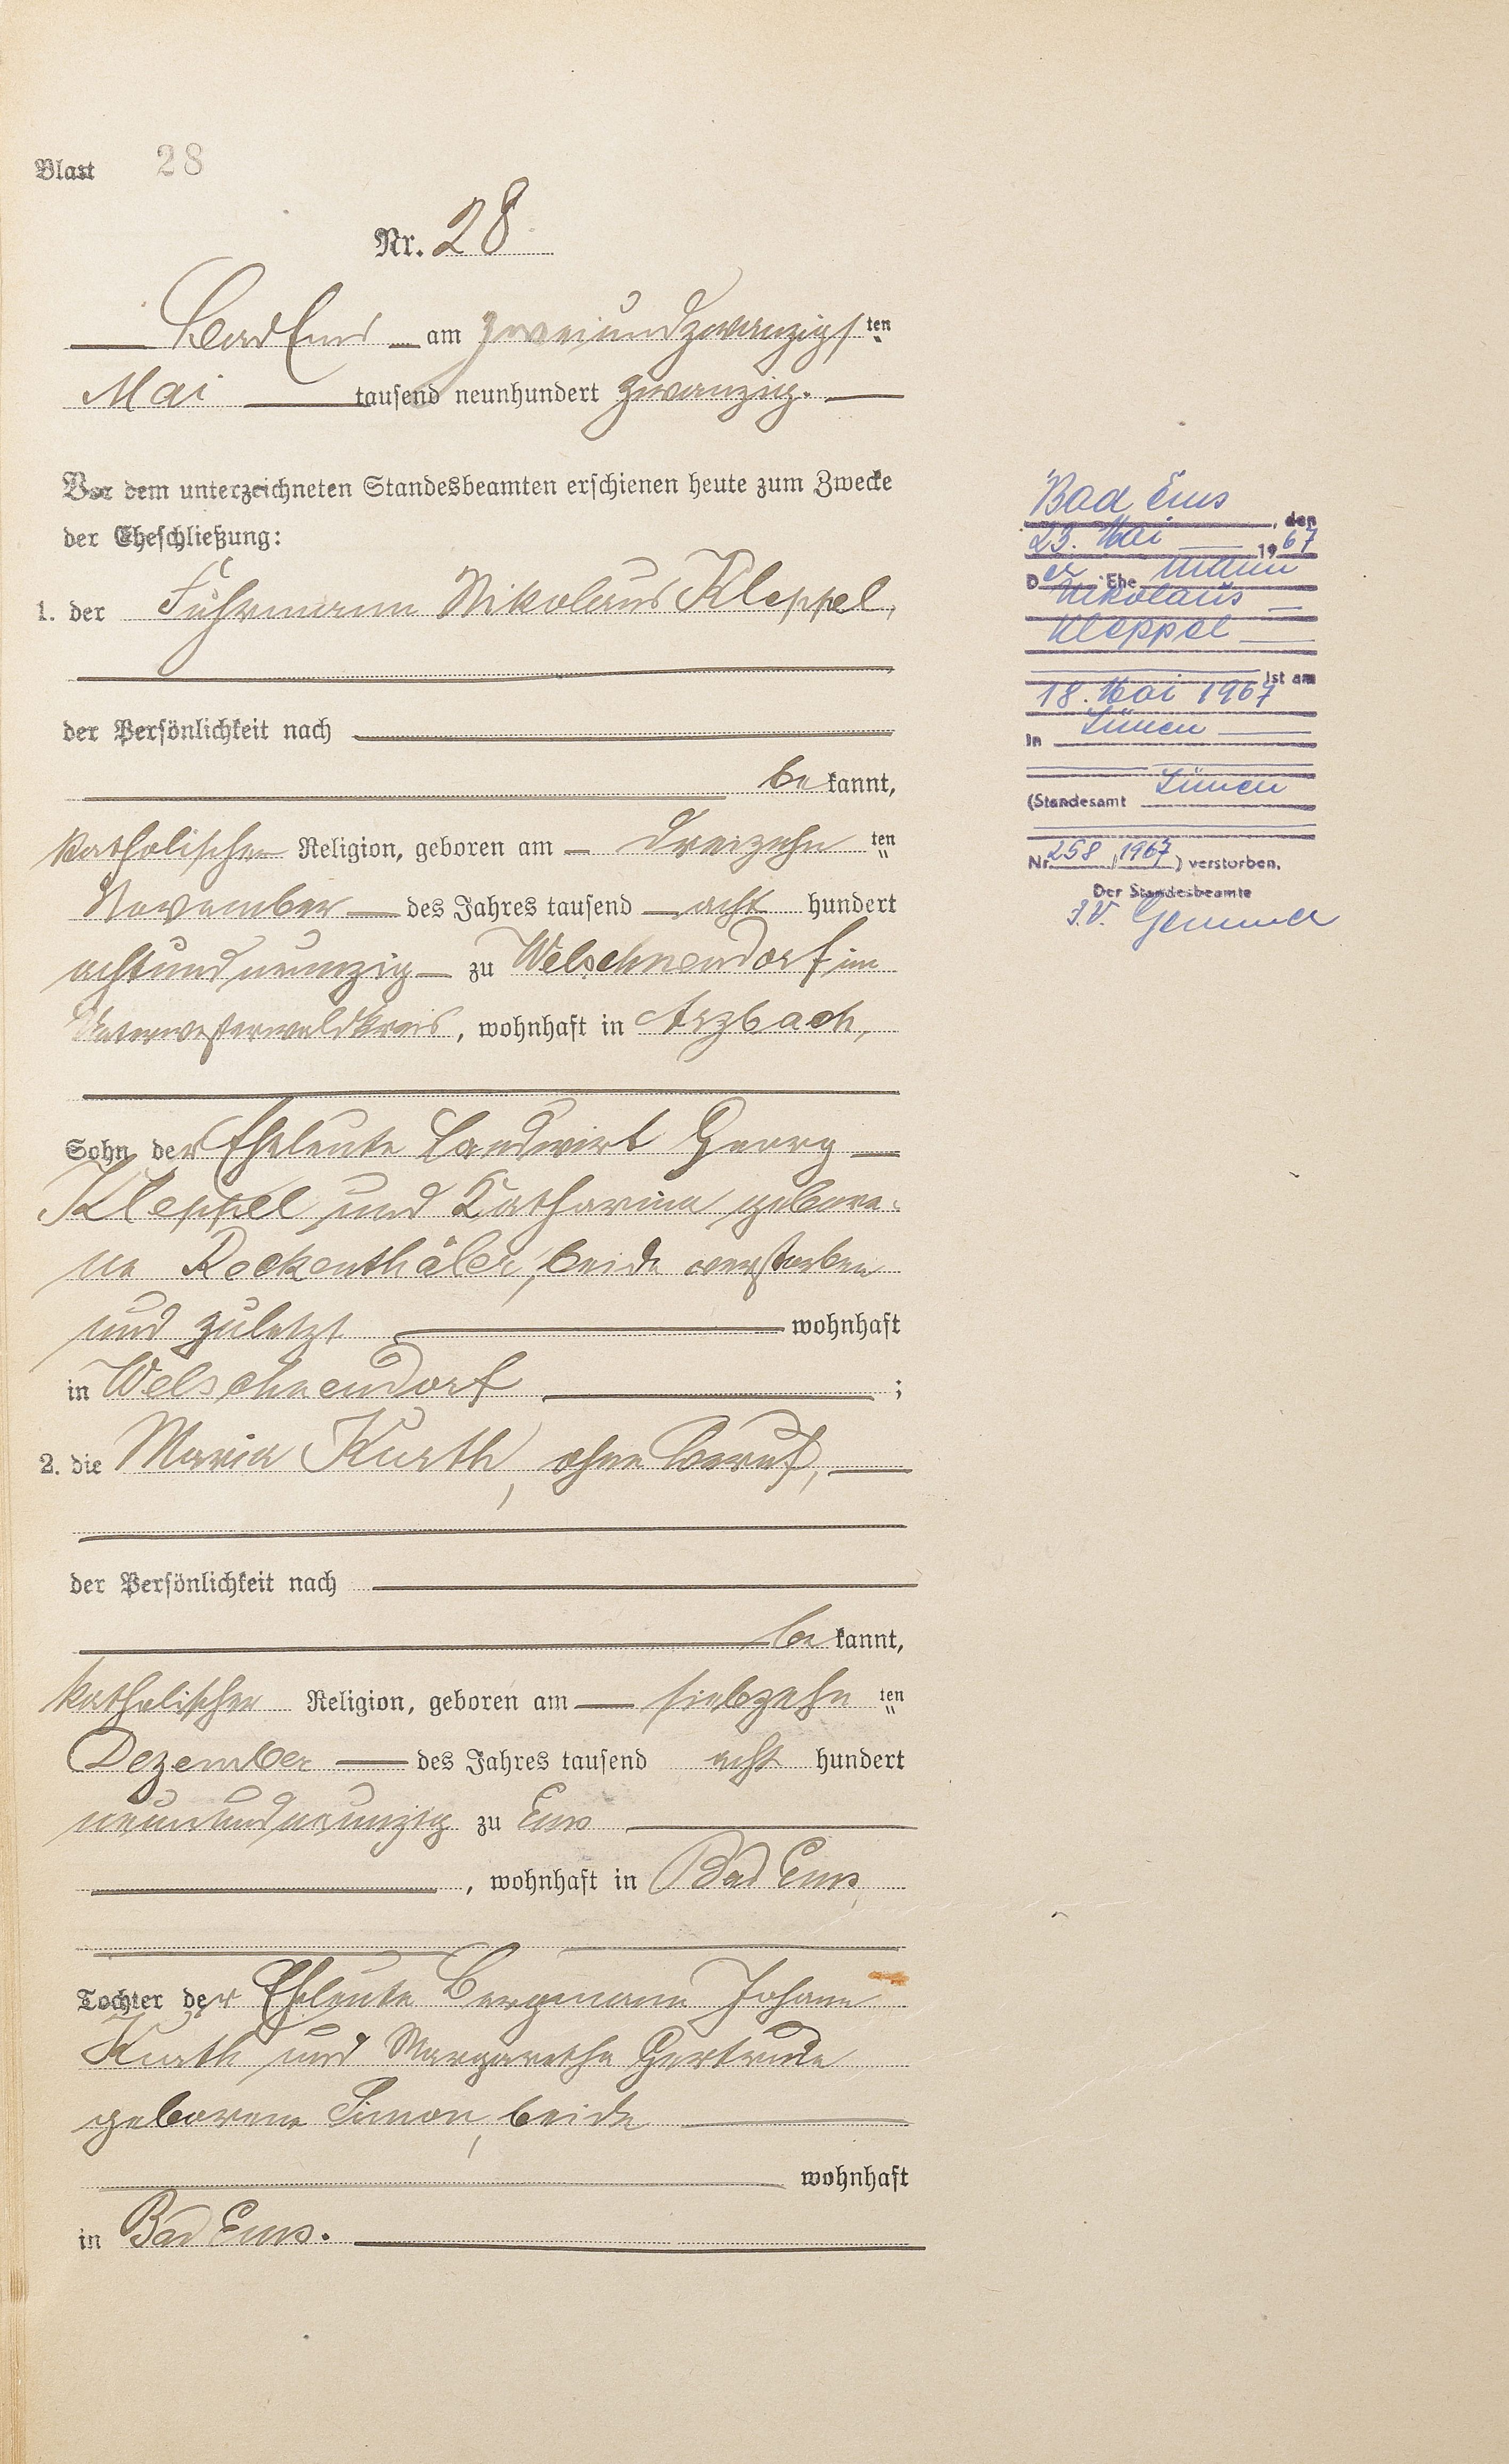 Blatt 28
Nr. 28
Bad Ems am zweiundzwanzigsten
Mai tausend neunhundert zwanzig.
Vor dem unterzeichneten Standesbeamten erschienen heute zum Zwecke
der Eheschließung:
1. der Fuhrmann Nikolaus Kleppel,
der Persönlichkeit nach
be kannt,
katholischer Religion, geboren am dreizehn ten
November des Jahres tausend acht hundert
achtundneunzig zu Welschneudorf im
Unterwesterwaldkreis, wohnhaft in Arzbach,
Sohn der Eheleute Landwirt Georg
Kleppel und Katharina gebore-
ne Rockenthäler, beide verstorben
und zuletzt wohnhaft
in Welschneudorf ;
2. die Maria Kurth, ohne Beruf,
der Persönlichkeit nach
be kannt,
katholischer Religion, geboren am siebzehn ten
Dezember des Jahres tausend acht hundert
neunundneunzig zu Ems
, wohnhaft in Bad Ems,
Tochter der Eheleute Bergmann Johann
Kurth und Margaretha Gertrude
geborene Simon, beide
wohnhaft
in Bad Ems.
Bad Ems, den
23. Mai 1967
Der Ehemann
Nikolaus
Kleppel
ist am
18. Mai 1967
in Lünen
(Standesamt Lünen
Nr. 258/1967) verstorben.
Der Standesbeamte
I.V.